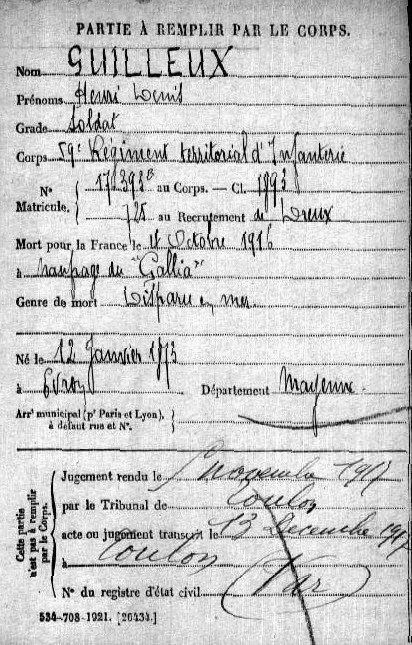 PARTIE À REMPLIR PAR LE CORPS.
Nom GUILLEUX
Prénoms Henri Denis
Grade Soldat
Corps 59e Régiment territorial d'Infanterie
N° au Corps. — Cl. 1893
Matricule. 725 au Recrutement de Dreux
Mort pour la France le 4 Octobre 1916
à naufrage du "Gallia"
Genre de mort Disparu en mer
Né le 12 Janvier 1873
à Evron Département Mayenne
Arrt municipal (pr Paris et Lyon),
à défaut rue et N°.
Cette partie
n'est pas à remplir
par le Corps.
Jugement rendu le novembre 1917
par le Tribunal de Toulon
acte ou jugement transcrit le 13 Décembre 1917
à Toulon
(Var)
N° du registre d'état civil
534-708-1921. [26434.]